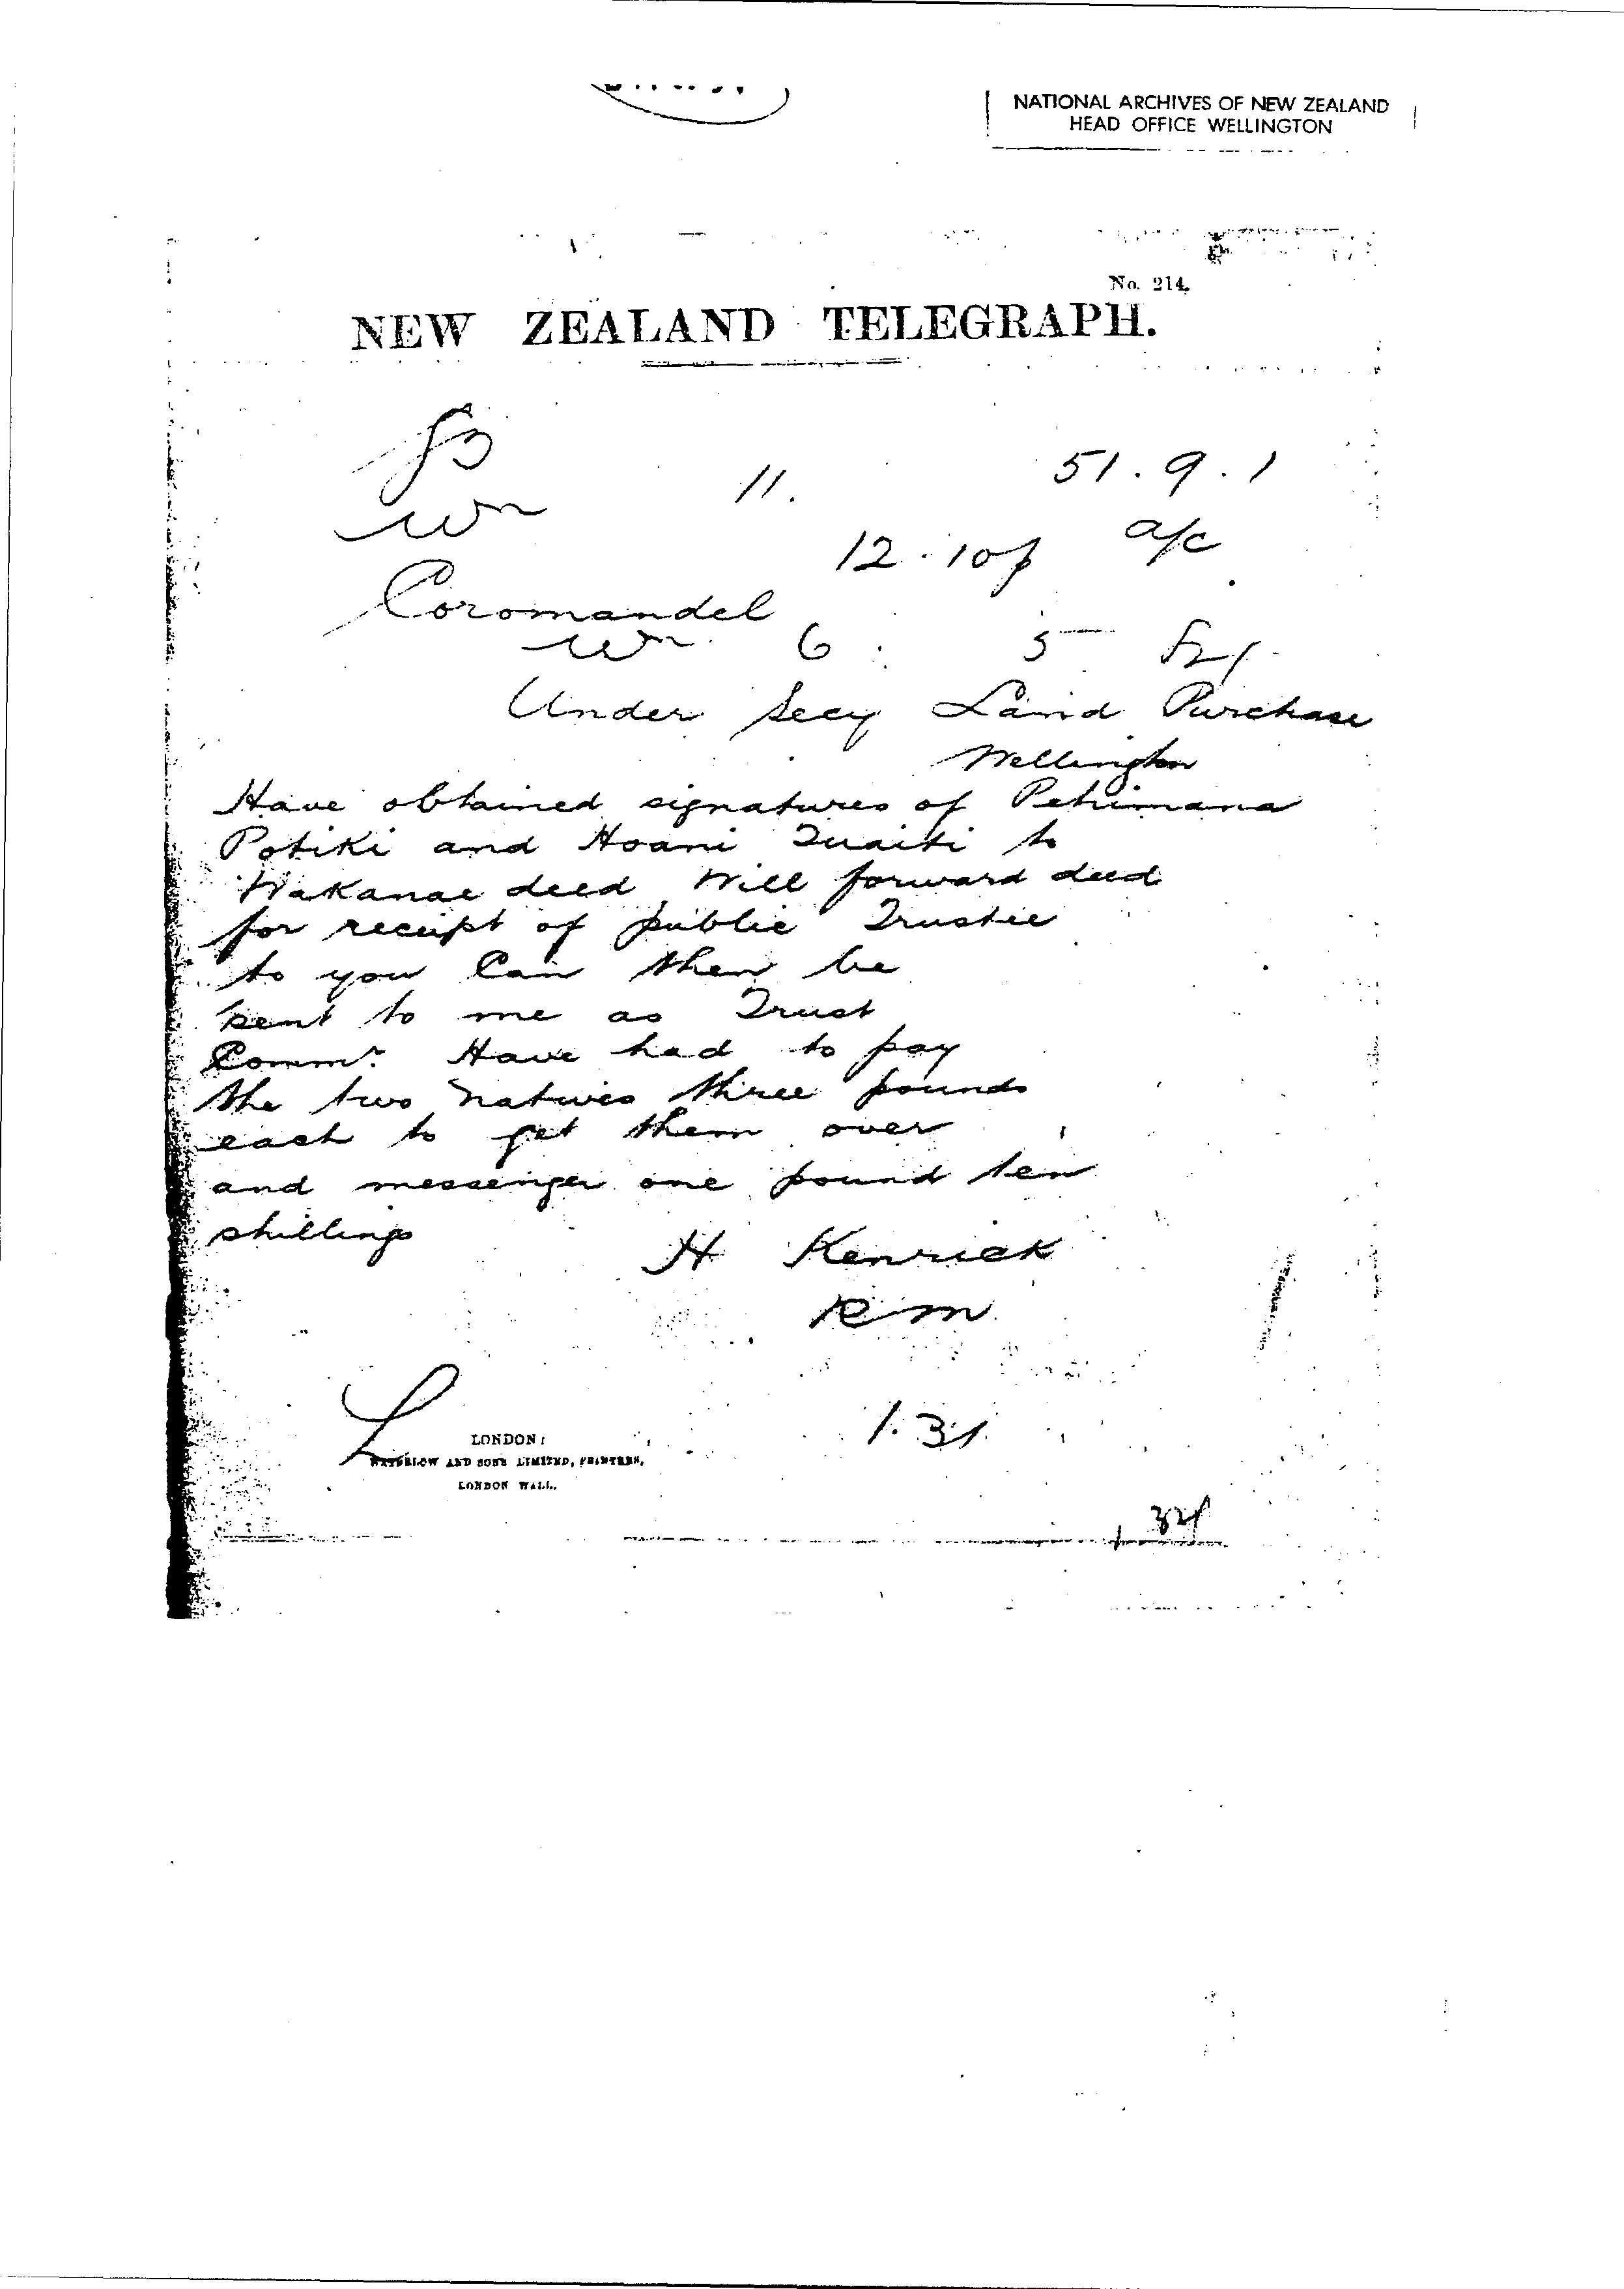 NATIONAL ARCHIVES OF NEW ZEALAND
HEAD OFFICE WELLINGTON
No. 214.
NEW ZEALAND TELEGRAPH.
11. 51.9.1
Wn
12.10p a/c
Coromandel
Wn 6 5
Under Secy Land Purchase
Wellington
Have obtained signatures of Pehimana
Potiki and Hoani Tuaiti to
Wakanae deed Will forward deed
for receipt of public Trustee
to you Can then be
sent to me as Trust
Commr. Have had to pay
the two natives three pounds
each to get them over
and messenger one pound ten
shillings
H Kenrick
R M
1.31
LONDON:
WATERLOW AND SONS LIMITED, PRINTERS,
LONDON WALL.